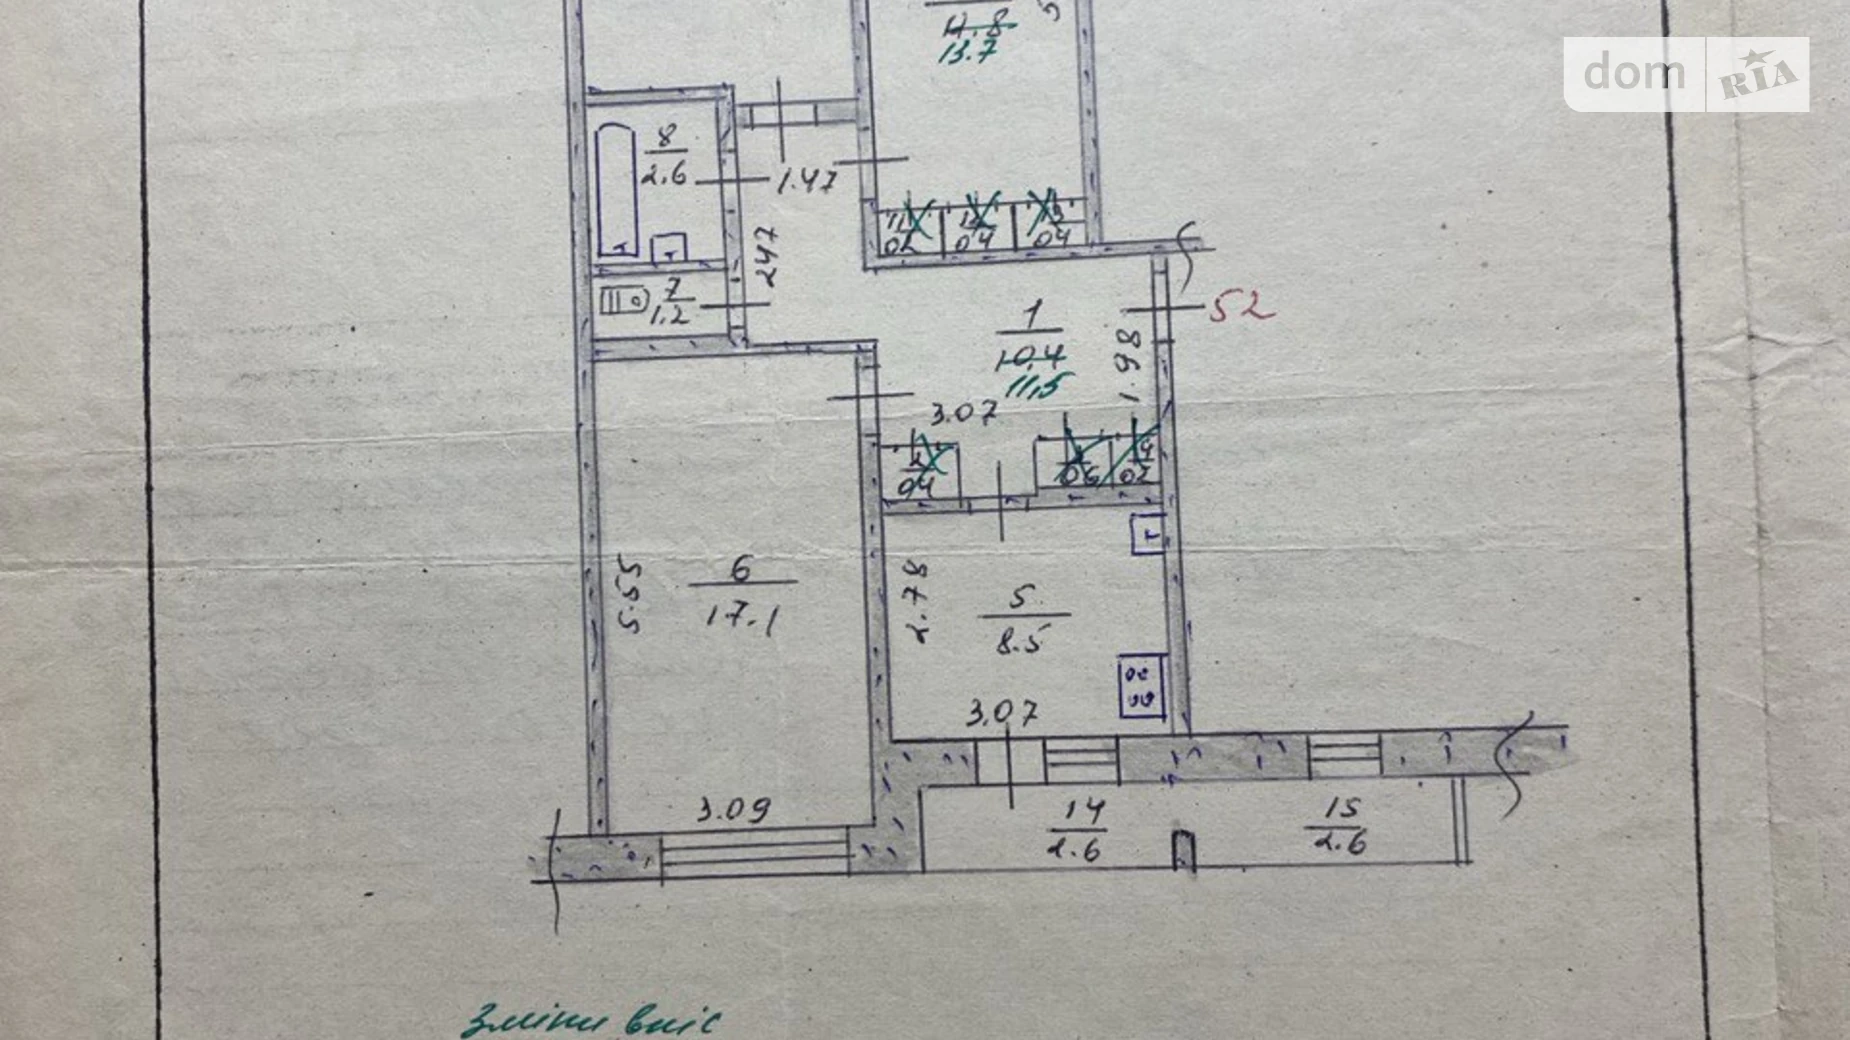 11.8
13.7
dom RIA
8
2.6
1.47
11
0.4
0.4
2.47
7
1.2
1
10.4
11,5
1.98
52
3.07
2
0.4
0.6
4
0.2
5.55
6
17.1
2.78
5
8.5
3.07
3.09
14
2.6
15
2.6
Зміни вніс